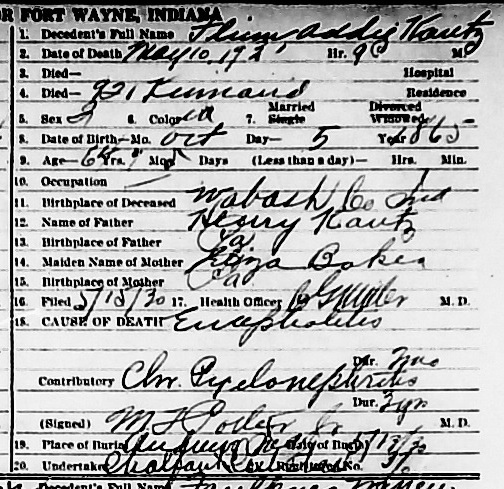 OR FORT WAYNE, INDIANA
1. Decedent's Full Name Plum Addie Kautz
2. Date of Death May 10, 192 Hr. 9 M.
3. Died— Hospital
4. Died— 921 Residence
5. Sex 6. Color W 7. Married Single Divorced Widowed
8. Date of Birth—Mo. Oct Day— 5 Year 1865
9. Age— 64 Yrs. 7 Mos. 5 Days (Less than a day)— Hrs. Min.
10. Occupation
11. Birthplace of Deceased Wabash Co Ind
12. Name of Father Henry Kautz
13. Birthplace of Father Pa
14. Maiden Name of Mother Eliza Baker
15. Birthplace of Mother Pa
16. Filed 5/15/30 17. Health Officer M. D.
18. CAUSE OF DEATH Encephalitis
Dur. 2mo
Contributory Chr. Pyelonephritis
Dur. 3yr
(Signed) M. D.
19. Place of Burial Date of Burial 5/13/30
20. Undertaker Chalfant Registered No.
Decedent's Full Name